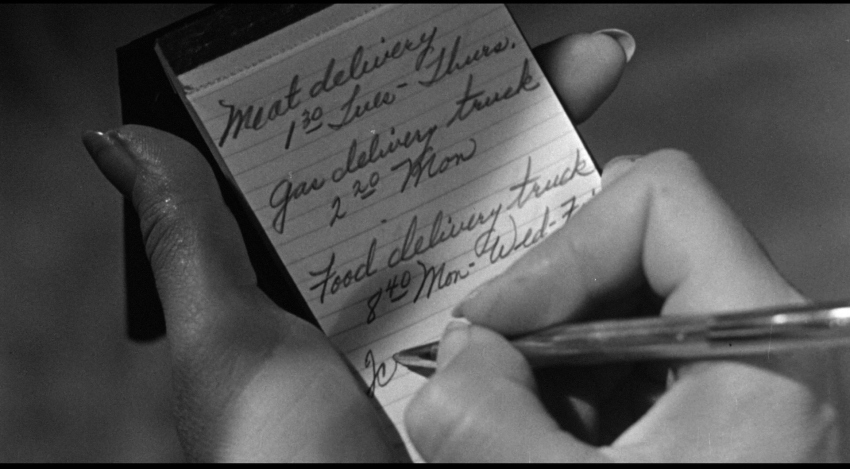 Meat delivery
1 30 Tues- Thurs.
Gas delivery truck
2 20 Mon
Food delivery truck
8 40 Mon- Wed-